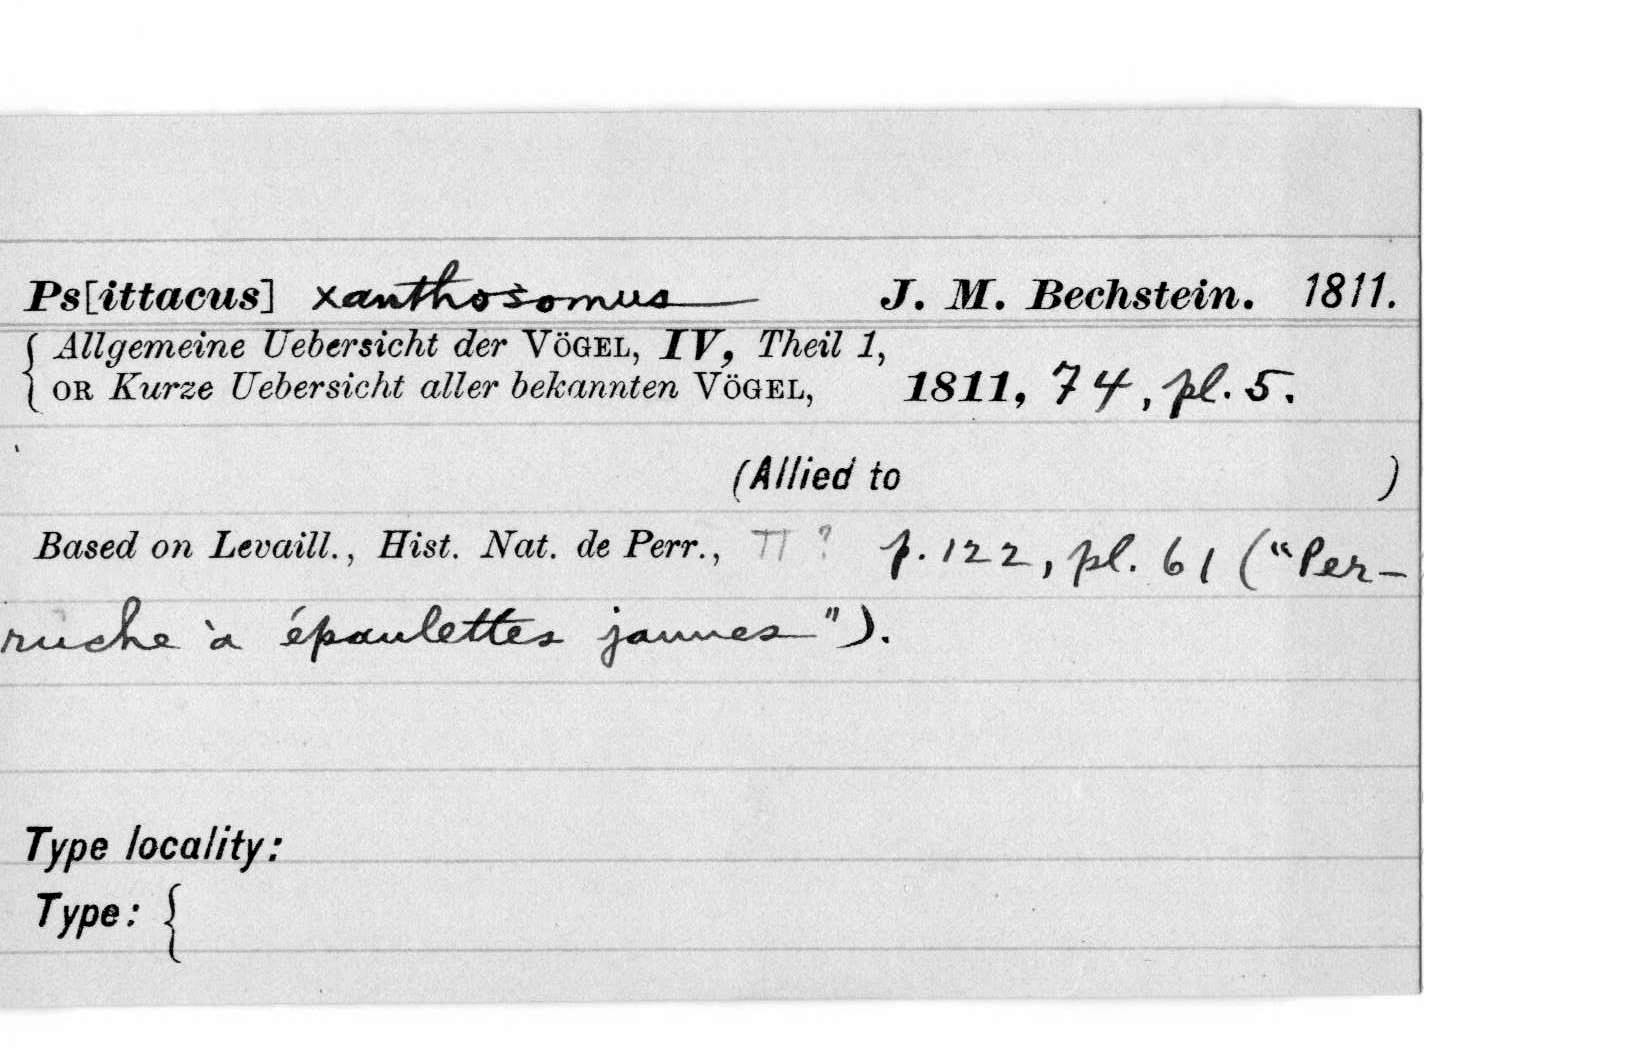 Ps[ittacus] xanthosomus J. M. Bechstein. 1811.
{ Allgemeine Uebersicht der VÖGEL, IV, Theil 1,
OR Kurze Uebersicht aller bekannten VÖGEL, 1811, 74, pl. 5.
(Allied to )
Based on Levaill., Hist. Nat. de Perr., II ? p. 122, pl. 61 ("Per-
ruche à épaulettes jaunes").
Type locality:
Type: {